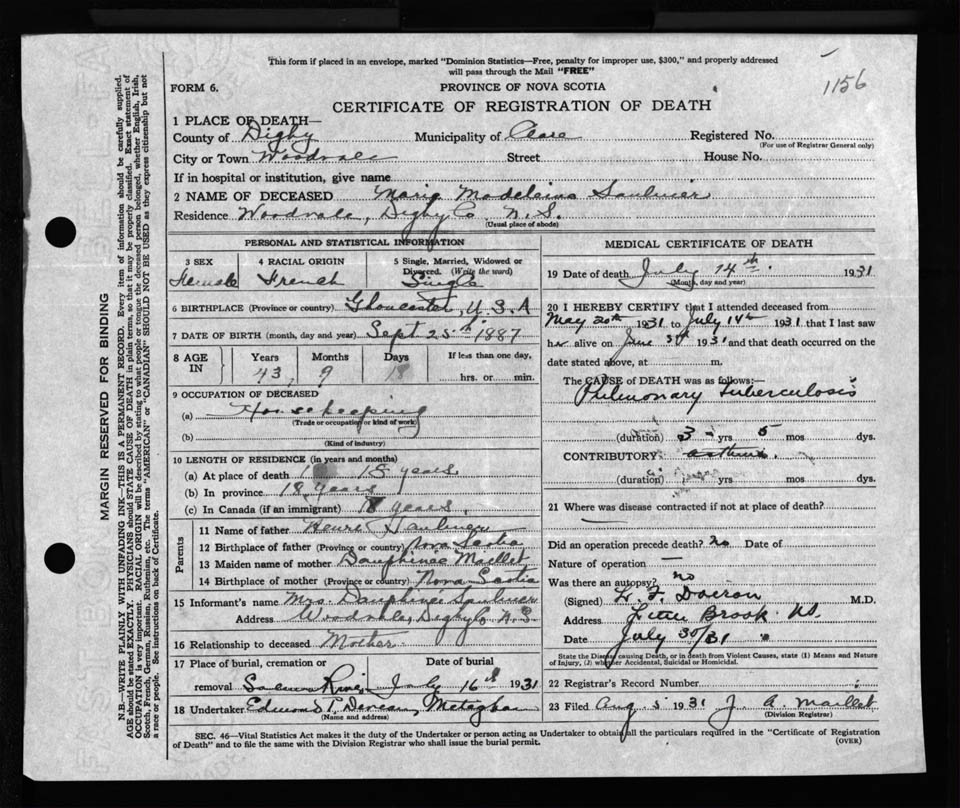 This form if placed in an envelope, marked "Dominion Statistics—Free, penalty for improper use, $300," and properly addressed
will pass through the Mail "FREE"
1156
FORM 6.
PROVINCE OF NOVA SCOTIA
CERTIFICATE OF REGISTRATION OF DEATH
1 PLACE OF DEATH—
County of Digby Municipality of Clare Registered No.
(For use of Registrar General only)
City or Town Woodvale Street House No.
If in hospital or institution, give name
2 NAME OF DECEASED Marie Madeleine Saulnier
Residence Woodvale, Digby Co. N. S.
(Usual place of abode)
PERSONAL AND STATISTICAL INFORMATION
3 SEX 4 RACIAL ORIGIN 5 Single, Married, Widowed or
Divorced. (Write the word)
Female French Single
6 BIRTHPLACE (Province or country) Gloucester, U.S.A
7 DATE OF BIRTH (month, day and year) Sept 25th 1887
8 AGE IN Years Months Days If less than one day,
43 9 18 hrs. or min.
9 OCCUPATION OF DECEASED
(a) Housekeeping
(Trade or occupation or kind of work)
(b)
(Kind of industry)
10 LENGTH OF RESIDENCE (in years and months)
(a) At place of death 18 years
(b) In province 18 years
(c) In Canada (if an immigrant) 18 years.
Parents
11 Name of father Henri Saulnier
12 Birthplace of father (Province or country) Nova Scotia
13 Maiden name of mother Dauphinée Maillet
14 Birthplace of mother (Province or country) Nova Scotia
15 Informant's name Mrs. Dauphine Saulnier
Address Woodvale, Digby Co N.S.
16 Relationship to deceased Mother
17 Place of burial, cremation or Date of burial
removal River July 16th 1931
18 Undertaker Edmund Deveau, Meteghan
(Name and address)
MEDICAL CERTIFICATE OF DEATH
19 Date of death July 14th. 1931
(Month, day and year)
20 I HEREBY CERTIFY that I attended deceased from
May 20th 1931 to July 14th 1931 that I last saw
her alive on June 1931 and that death occurred on the
date stated above, at m.
The CAUSE of DEATH was as follows:—
Pulmonary Tuberculosis
(duration) 3 yrs 5 mos dys.
CONTRIBUTORY asthma.
(duration) yrs mos dys.
21 Where was disease contracted if not at place of death?
—
Did an operation precede death? no Date of
Nature of operation —
Was there an autopsy? no
(Signed) L. F. Doiron M.D.
Address Little Brook NS.
Date July 30/31
State the Disease causing Death, or in death from Violent Causes, state (1) Means and Nature
of Injury, (2) whether Accidental, Suicidal or Homicidal.
22 Registrar's Record Number
23 Filed Aug 5 1931 J A. Maillet
(Division Registrar)
SEC. 46—Vital Statistics Act makes it the duty of the Undertaker or person acting as Undertaker to obtain all the particulars required in the "Certificate of Registration
of Death" and to file the same with the Division Registrar who shall issue the burial permit.
(OVER)
MARGIN RESERVED FOR BINDING
N.B.—WRITE PLAINLY WITH UNFADING INK—THIS IS A PERMANENT RECORD. Every item of information should be carefully supplied.
AGE should be stated EXACTLY. PHYSICIANS should STATE CAUSE OF DEATH in plain terms, so that it may be properly classified. Exact statement of
OCCUPATION is very important. RACIAL ORIGIN will be described by stating to what people or tongue the deceased person belonged, whether English, Irish,
Scotch, French, German, Russian, Ruthenian, etc. The terms "AMERICAN" or "CANADIAN" SHOULD NOT BE USED as they express citizenship but not
a race or people. See instructions on back of Certificate.